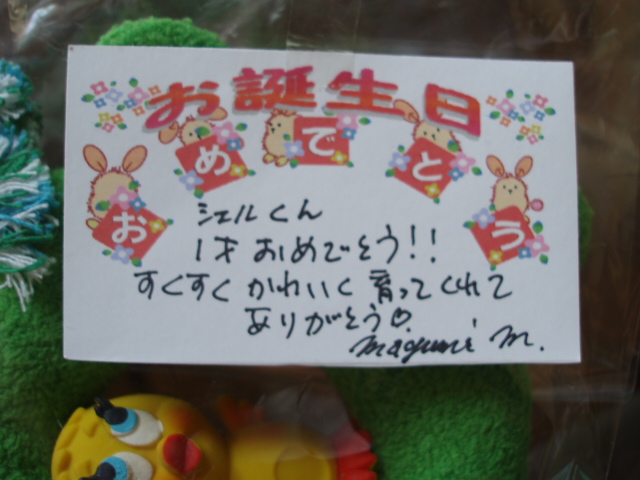 お誕生日
おめでとう
シェルくん
1才おめでとう!!
すくすくかわいく育ってくれて
ありがとう♡
Magumi M.